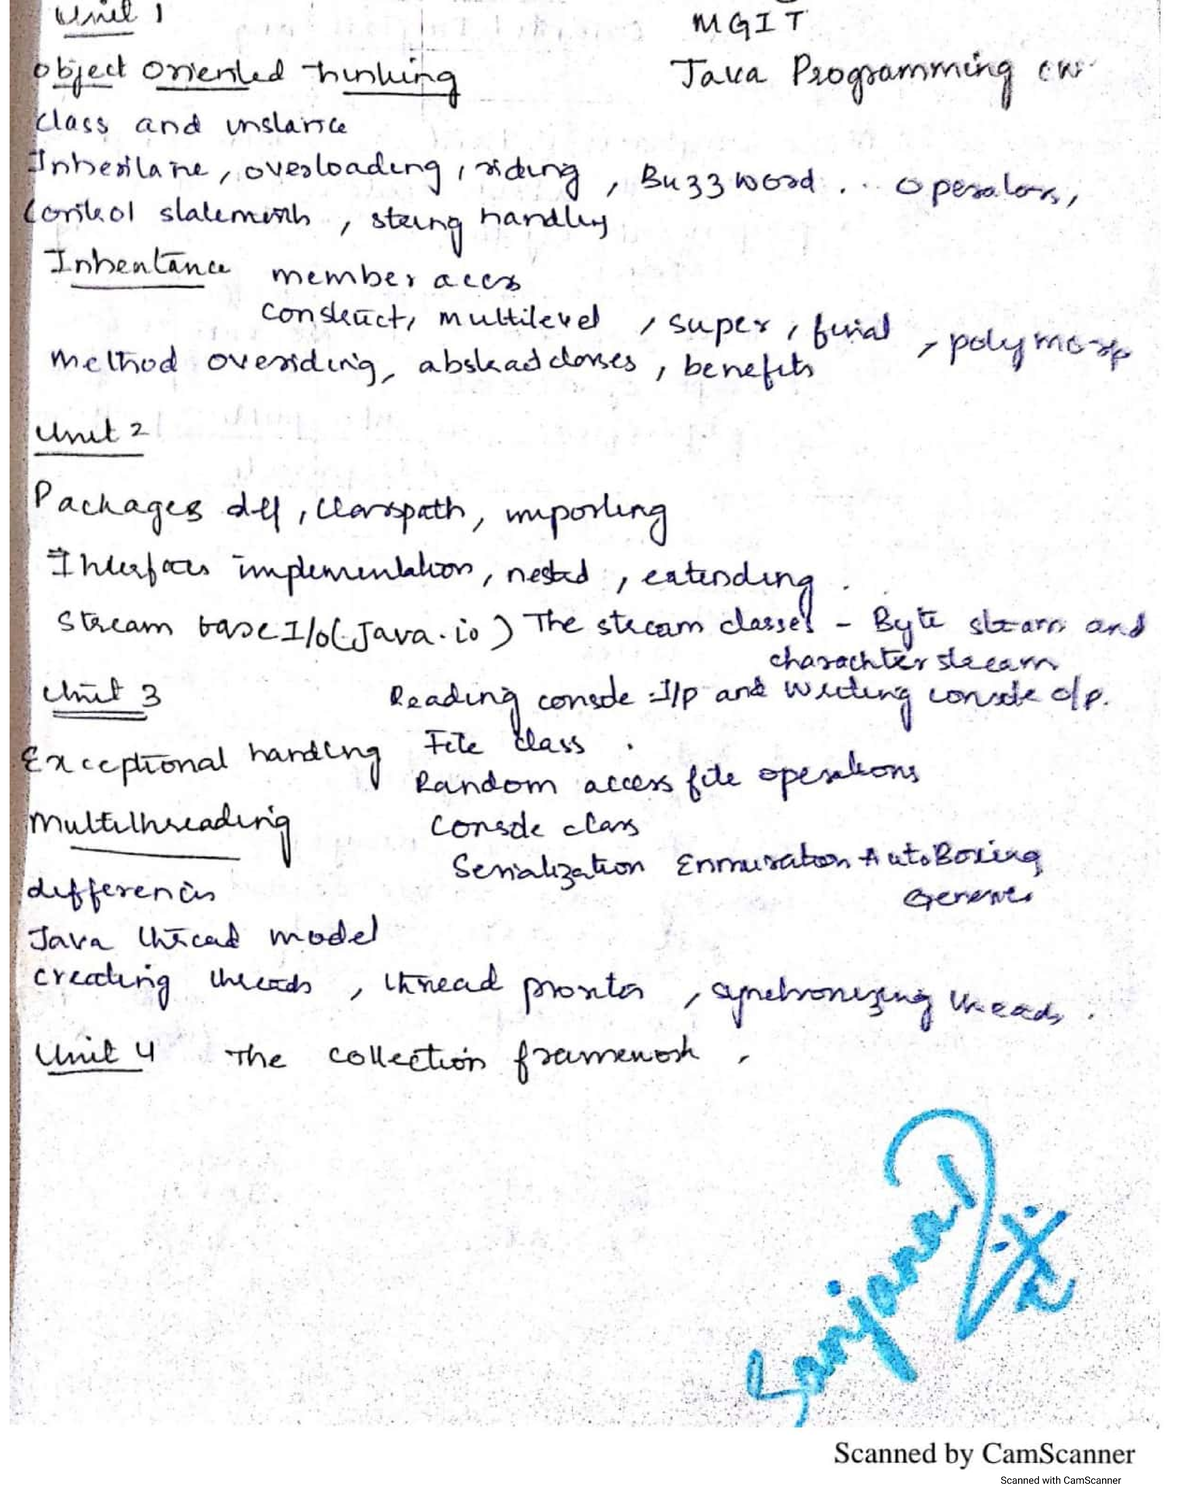 Unit 1
MGIT
object oriented thinking
Java Programming
class and instance
Inheritance, overloading, riding, Buzzword .. operators,
control statements, string handling
Inheritance member access
construct, multilevel, super, final, polymorp
method overiding, abstract classes, benefits
Unit 2
Packages def, classpath, importing
Interfaces implementation, nested, extending.
Stream base I/O (Java.io) The stream classes - Byte stream and
charachter stream
Unit 3 Reading console I/p and Writing console o/p.
Exceptional handling File class.
Random access file operations
Multithreading Console class
Serialization Enmuration AutoBoxing
differences Generics
Java thread model
creating threads, thread priorites, synchronizing threads.
Unit 4 The collection framework,
Sanjana
Scanned by CamScanner
Scanned with CamScanner